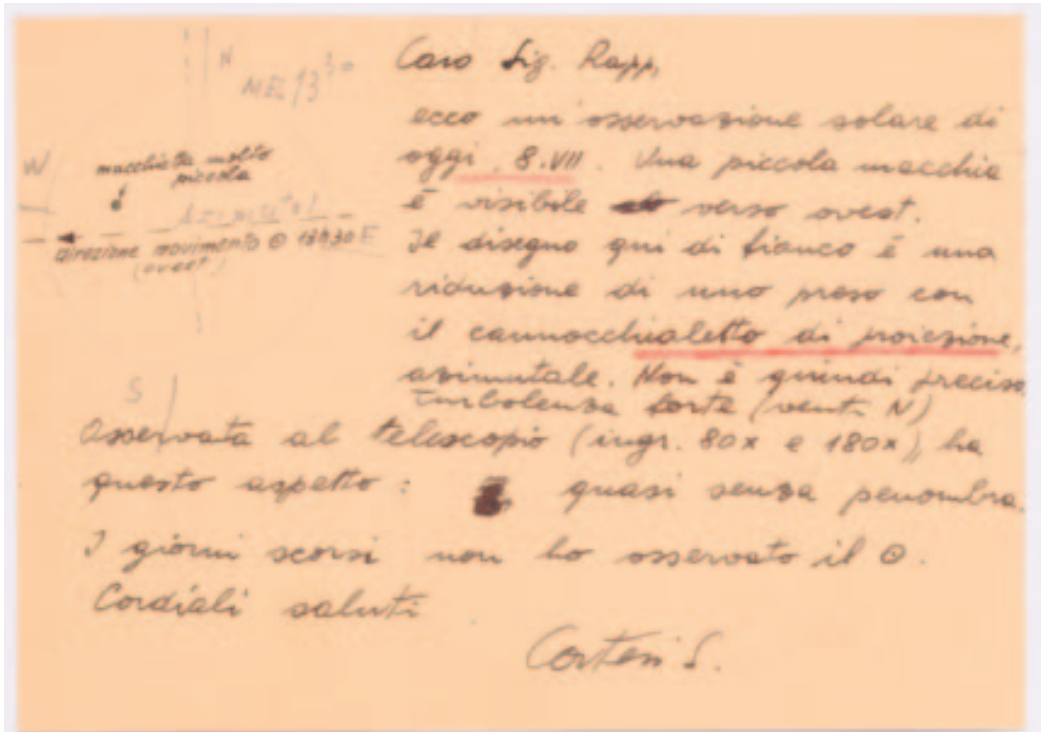 N
MEZ 13 30
W
macchietta molto
piccola
Azimutal
direzione movimento ⊙ 13h30 E
(ovest)
S
Caro Sig. Rapp,
ecco un'osservazione solare di
oggi, 8.VII. Una piccola macchia
è visibile verso ovest.
Il disegno qui di fianco è una
riduzione di uno preso con
il cannocchialetto di proiezione,
azimutale. Non è quindi preciso.
Turbolenza forte (vent. N)
Osservata al telescopio (ingr. 80x e 180x), ha
questo aspetto: quasi senza penombra.
I giorni scorsi non ho osservato il ⊙.
Cordiali saluti
Cortesi S.